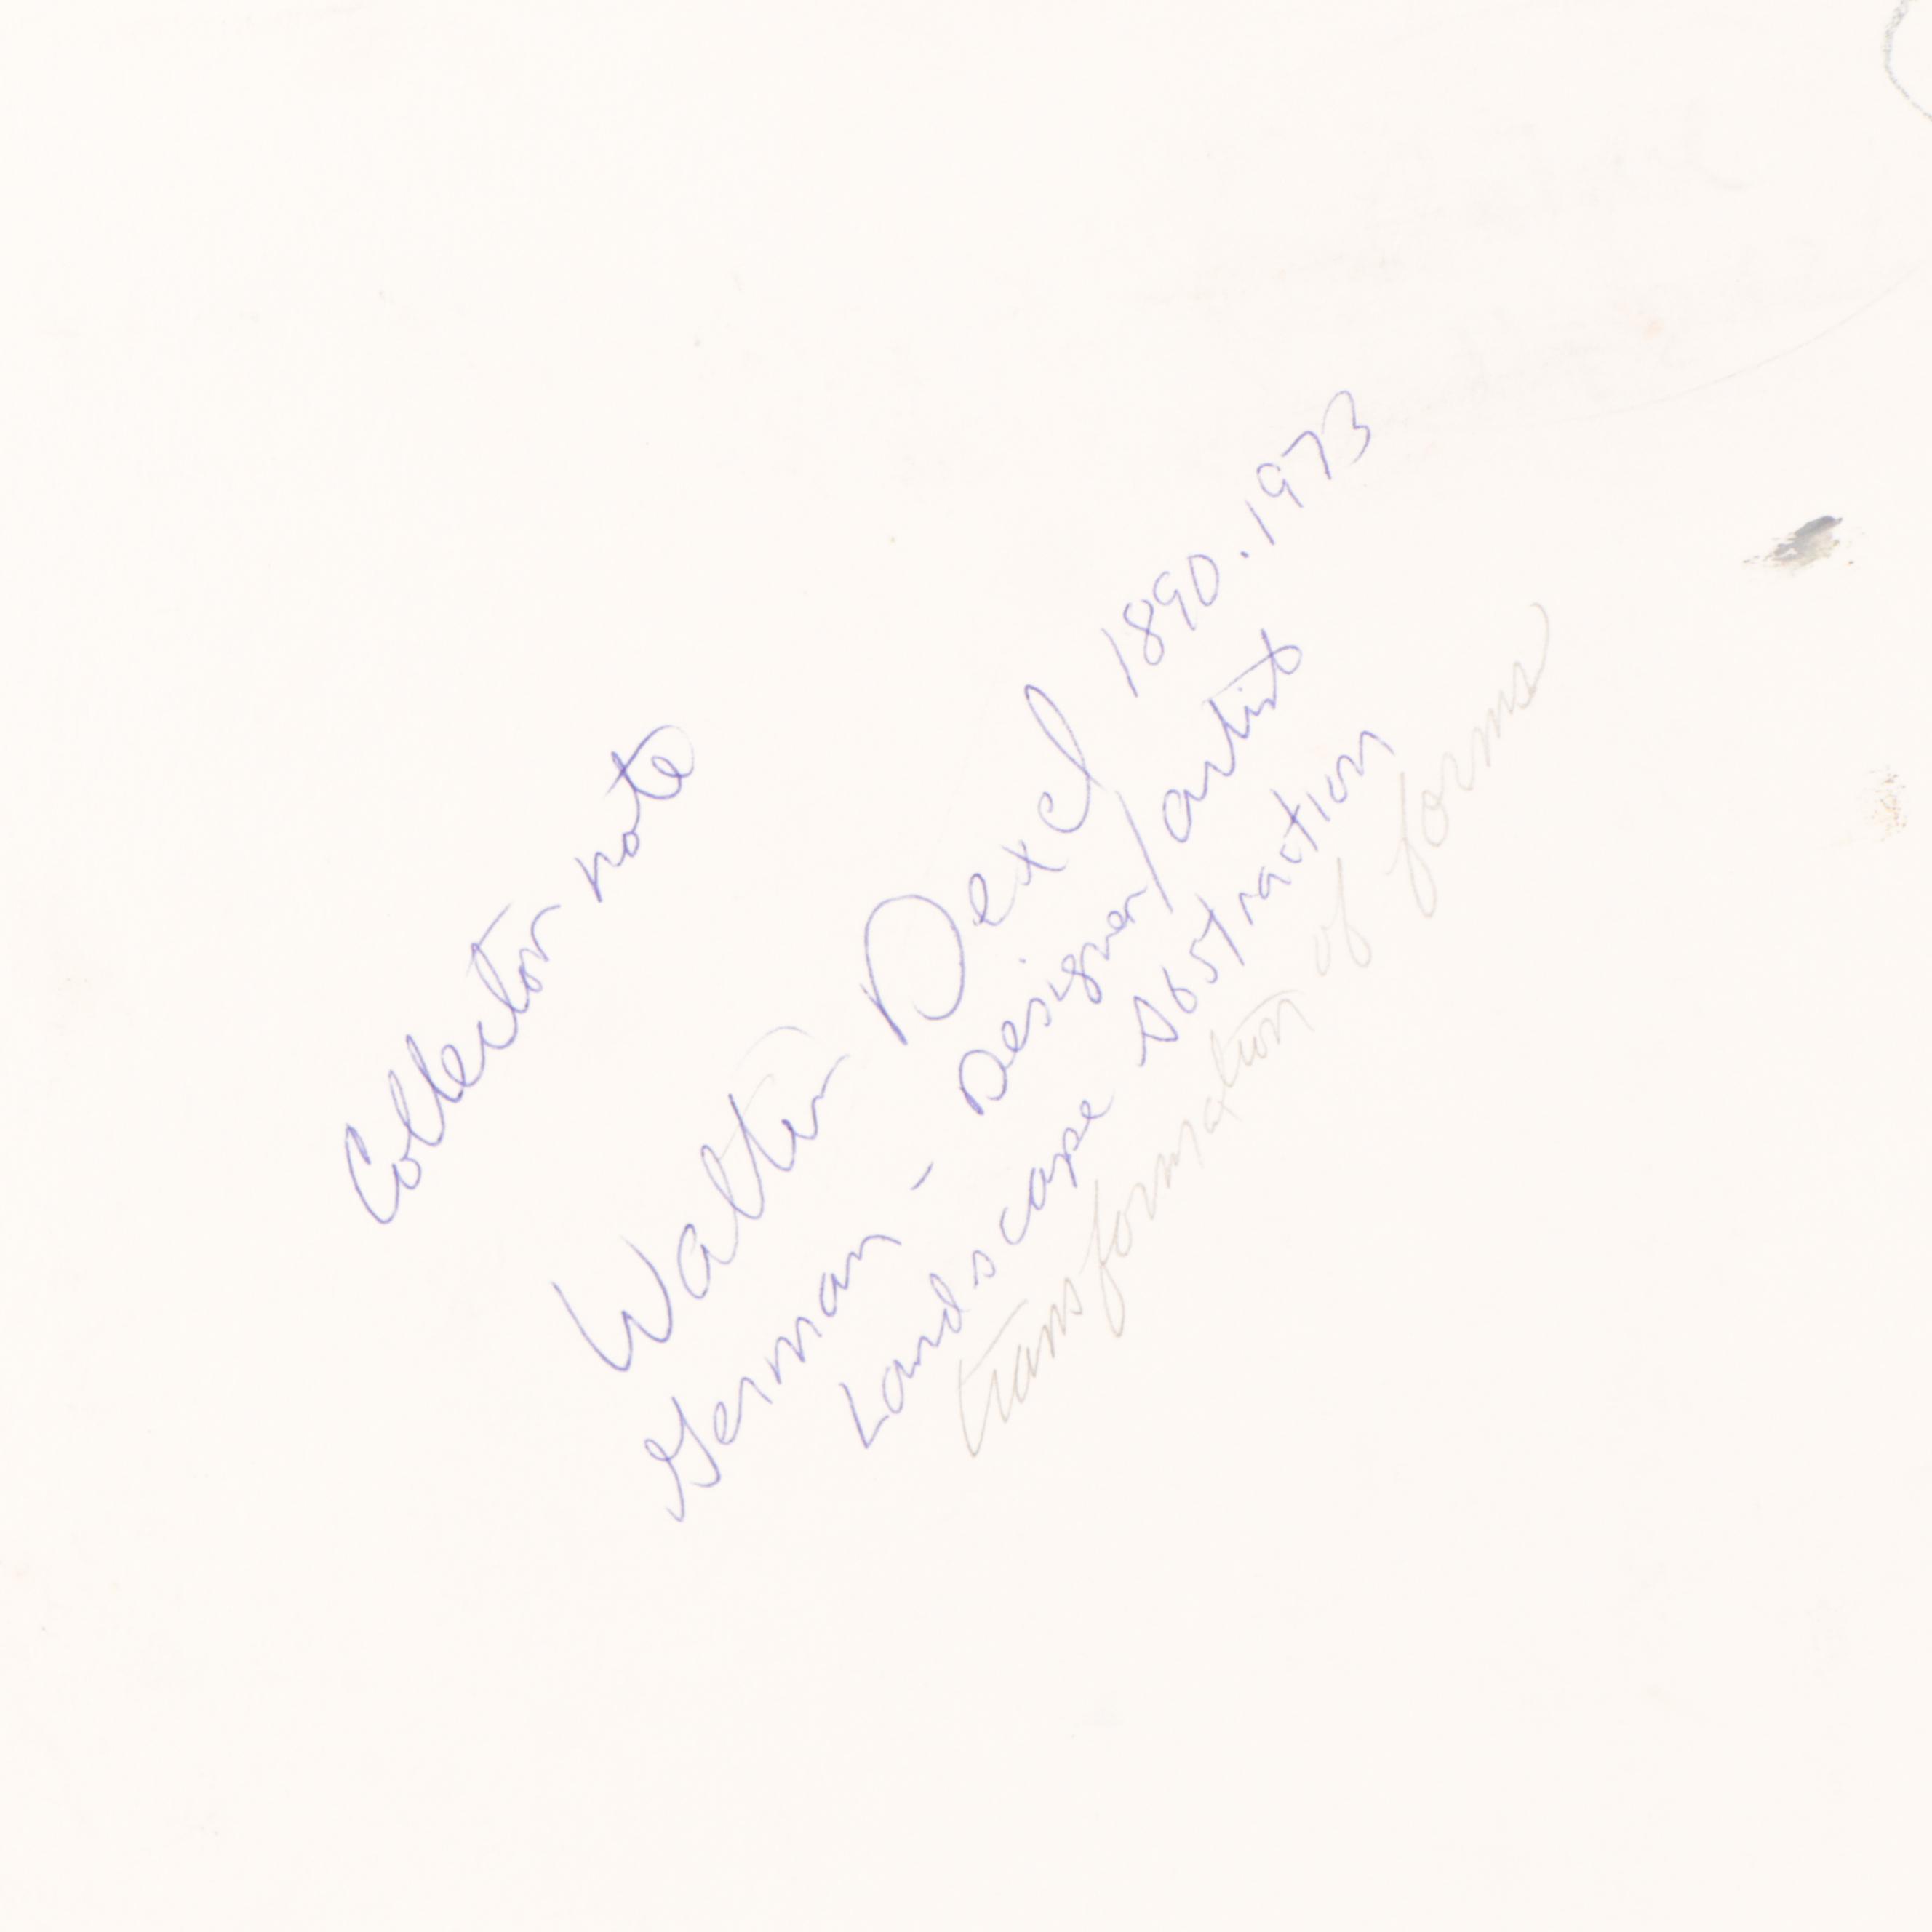 Collector note
Walter Dexel 1890.1973
German - Designer/artist
Landscape Abstraction
transformation of forms